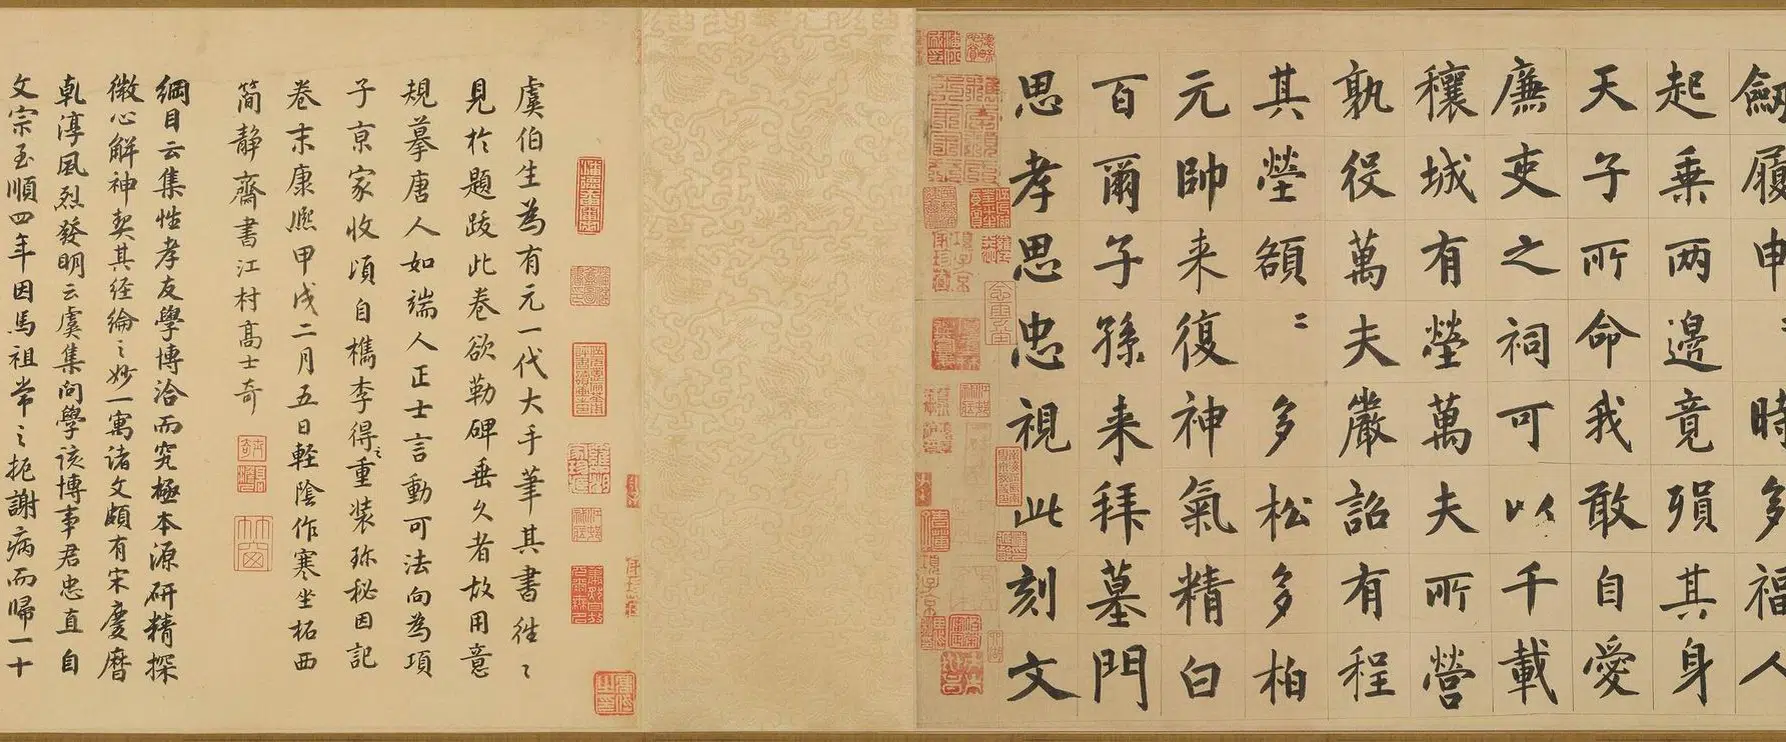 劒履申〻時多福人
起乗两邊竟殞其身
天子所命我敢自愛
廉吏之祠可以千載
穰城有塋萬夫所營
孰役萬夫嚴詔有程
其塋額〻多松多柏
元帥来復神氣精白
百爾子孫来拜墓門
思孝思忠視此刻文
虞伯生為有元一代大手筆其書往〻
見於題跋此卷欲勒碑垂久者故用意
規摹唐人如端人正士言動可法向為項
子京家收頃自檇李得之重装珎秘因記
卷末康熈甲戌二月五日軽陰作寒坐柘西
簡静齋書江村髙士奇
綱目云集性孝友學博洽而究極本源研精探
微心解神契其経綸之妙一寓諸文頗有宋慶暦
乹淳風烈發明云虞集问學該博事君忠直自
文宗至順四年因馬祖常之扼謝病而歸一十